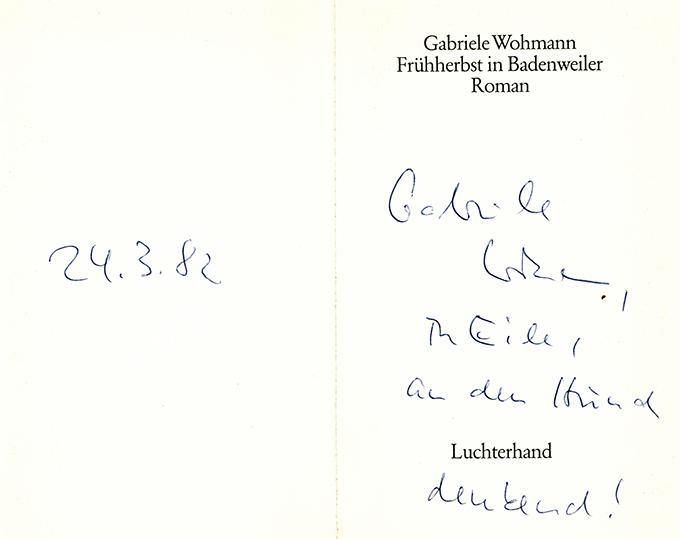 24.3.82
Gabriele Wohmann
Frühherbst in Badenweiler
Roman
Gabriele
Wohmann,
in Eile,
an den Hund
Luchterhand
denkend!